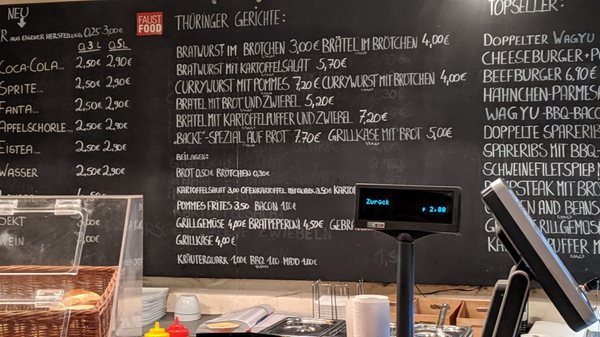 NEU
AUS EIGENER HERSTELLUNG 0,25 3,00€
0,3L 0,5L
COCA-COLA... 2,50€ 2,90€
SPRITE... 2,50€ 2,90€
FANTA... 2,50€ 2,90€
APFELSCHORLE.. 2,50€ 2,90€
EISTEA... 2,50€ 2,90€
WASSER 2,50€ 2,90€
FAUST
FOOD
THÜRINGER GERICHTE:
BRATWURST IM BRÖTCHEN 3,00€ BRÄTEL IM BRÖTCHEN 4,00€
BRATWURST MIT KARTOFFELSALAT 5,70€
CURRYWURST MIT POMMES 7,20€ CURRYWURST MIT BRÖTCHEN 4,00€
BRÄTEL MIT BROT UND ZWIEBEL 5,20€
BRÄTEL MIT KARTOFFELPUFFER UND ZWIEBEL 7,20€
„BACKE"-SPEZIAL AUF BROT 7,70€ GRILLKÄSE MIT BROT 5,00€
BEILAGEN:
BROT 0,50€ BRÖTCHEN 0,50€
KARTOFFELSALAT 3,00 OFENKARTOFFEL MIT QUARK 3,50€
POMMES FRITES 3,50 BACON 1,00€
GRILLGEMÜSE 4,00€ BRATPEPERONI 4,50€
GRILLKÄSE 4,00€
KRÄUTERQUARK 1,00€ BBQ 1,00 MOJO 1,00€
TOPSELLER:
DOPPELTER WAGYU
CHEESEBURGER
BEEFBURGER 6,90€
HÄHNCHEN-PARMES
WAGYU-BBQ-BACO
DOPPELTE SPARERIBS
SPARERIBS MIT BBQ
SCHWEINEFILETSPIEß M
STEAK MIT BRO
AND BEANS
GRILL
PUFFER M
Zurück
€ 2.80